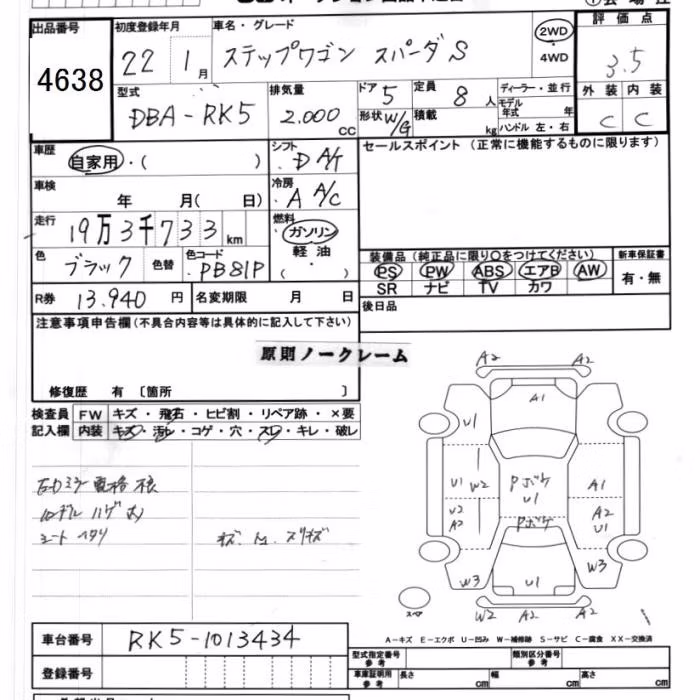 出品番号 初度登録年月 車名・グレード 評価点
4638 22 1月 ステップワゴン スパーダS 2WD 4WD 3.5
型式 排気量 ドア 定員 ディーラー・並行 外装 内装
DBA-RK5 2.000 CC 5 8人 モデル年式 年 C C
形状 W/G 積載 kg ハンドル 左・右
車歴 自家用・( ) シフト ・D A/T セールスポイント (正常に機能するものに限ります)
車検 年 月( 日) 冷房 ・A A/C
走行 19万3千733km 燃料 ・ガソリン 軽油・( )
装備品 (純正品に限り○をつけてください) 新車保証書
色 ブラック 色替 色コード ・PB81P PS PW ABS エアB AW 有・無
SR ナビ TV カワ
R券 13.940円 名変期限 月 日 後日品
注意事項申告欄(不具合内容等は具体的に記入して下さい)
原則ノークレーム
修復歴 有 〔箇所 〕
検査員 FW キズ・飛石・ヒビ割・リペア跡・×要
記入欄 内装 キズ・汚レ・コゲ・穴・スレ・キレ・破レ
シート ヘタリ
A2 A2
A1
U1
U1 W2 Pボケ U1 A1
U2 A2 Pボケ A2 U1
W3 U1 W3
スペア W2 A2 A2
A-キズ E-エクボ U-凹み W-補修跡 S-サビ C-腐食 XX-交換済
車台番号 RK5-1013434
型式指定番号 参考 類別区分番号 参考
登録番号 車庫証明用 参考 長さ cm 幅 cm 高さ cm